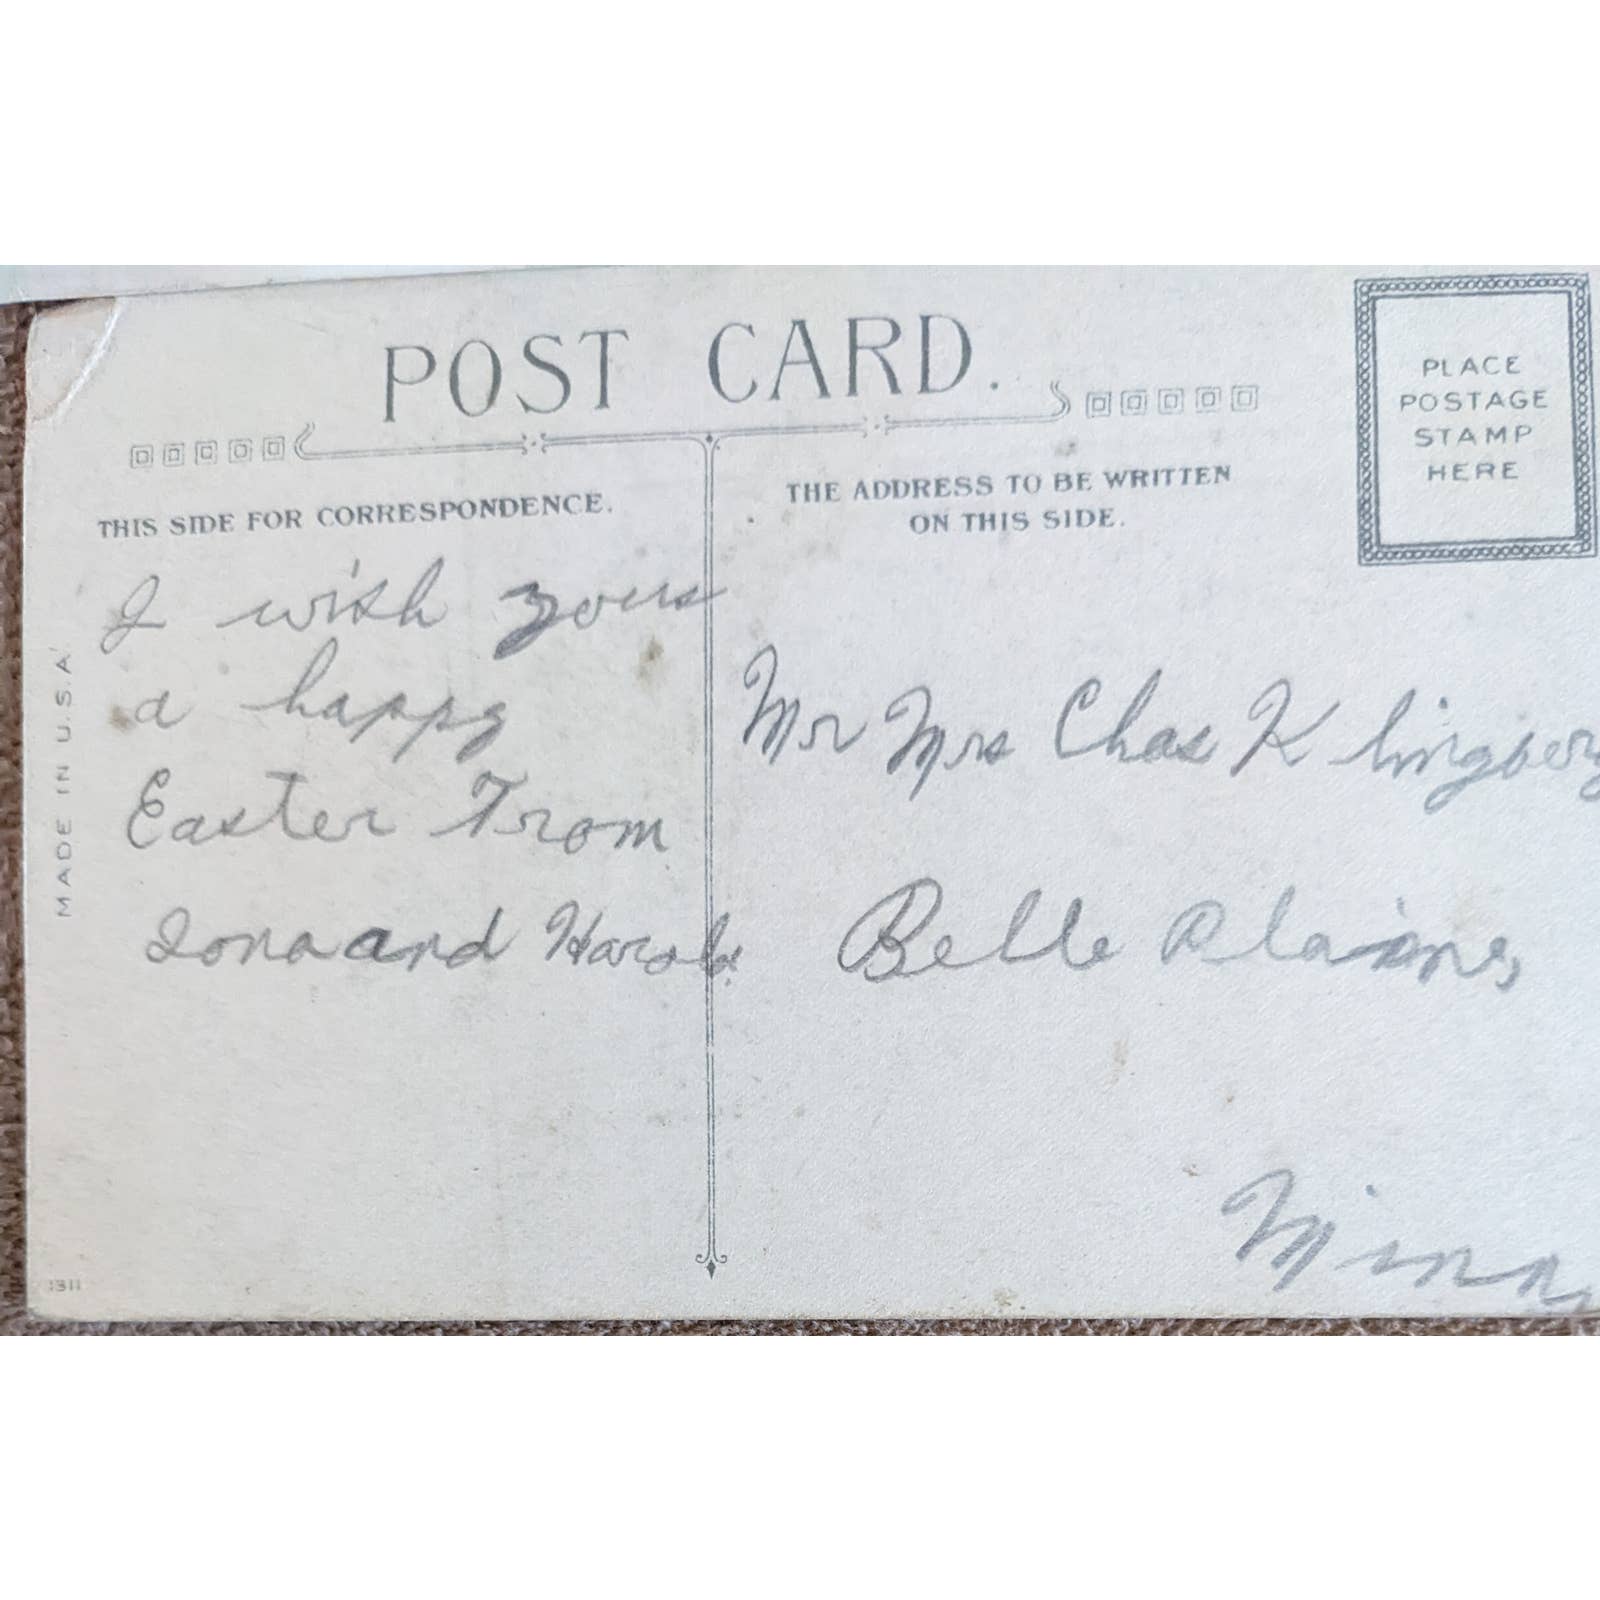 POST CARD.
THIS SIDE FOR CORRESPONDENCE.
I wish yous
a happy
Easter From
Iona and Harold.
THE ADDRESS TO BE WRITTEN
ON THIS SIDE.
PLACE
POSTAGE
STAMP
HERE
Mr Mrs Chas Klingberg
Belle Plaine,
Minn,
MADE IN U.S.A
1311